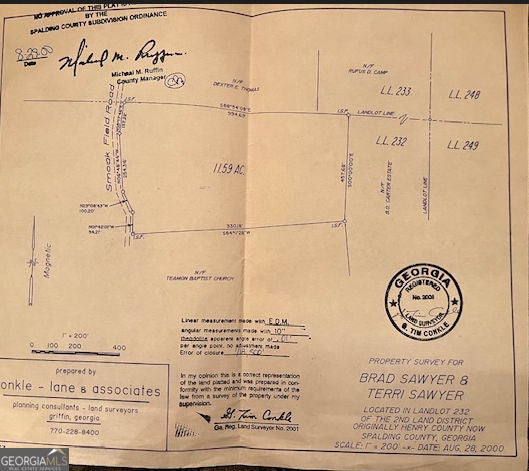 NO APPROVAL OF THIS PLAT IS
BY THE
SPALDING COUNTY SUBDIVISION ORDINANCE
8-29-00
Date
Michael M. Ruffin
Michael M. Ruffin
County Manager
Smoak Field Road
N/F
DEXTER E. THOMAS
N/F
RUFUS D. CAMP
L.L. 233
L.L. 248
I.S.F.
I.S.F.
LANDLOT LINE
994.69'
L.L. 232
L.L. 249
11.59 AC.
457.68'
S00°00'00"E
N/F
B.D. CARTER ESTATE
LANDLOT LINE
100.20'
94.27'
I.S.F.
I.S.F.
N/F
TEAMON BAPTIST CHURCH
Magnetic
GEORGIA
REGISTERED
No. 2001
LAND SURVEYOR
G. TIM CONKLE
Linear measurement made with E.D.M.
angular measurements made with 10"
theodolite apparent angle error of .01"
per angle point, no adjustment made
Error of closure
1" = 200'
0 100 200 400
prepared by
onkle - lane & associates
planning consultants - land surveyors
griffin, georgia
770-228-8400
In my opinion this is a correct representation
of the land platted and was prepared in con-
formity with the minimum requirements of the
law from a survey of the property under my
supervision.
G. Tim Conkle
Ga. Reg. Land Surveyor No. 2001
PROPERTY SURVEY FOR
BRAD SAWYER &
TERRI SAWYER
LOCATED IN LANDLOT 232
OF THE 2ND LAND DISTRICT
ORIGINALLY HENRY COUNTY NOW
SPALDING COUNTY, GEORGIA
SCALE: 1" = 200' DATE: AUG. 28, 2000
GEORGIAMLS
REAL ESTATE SERVICES